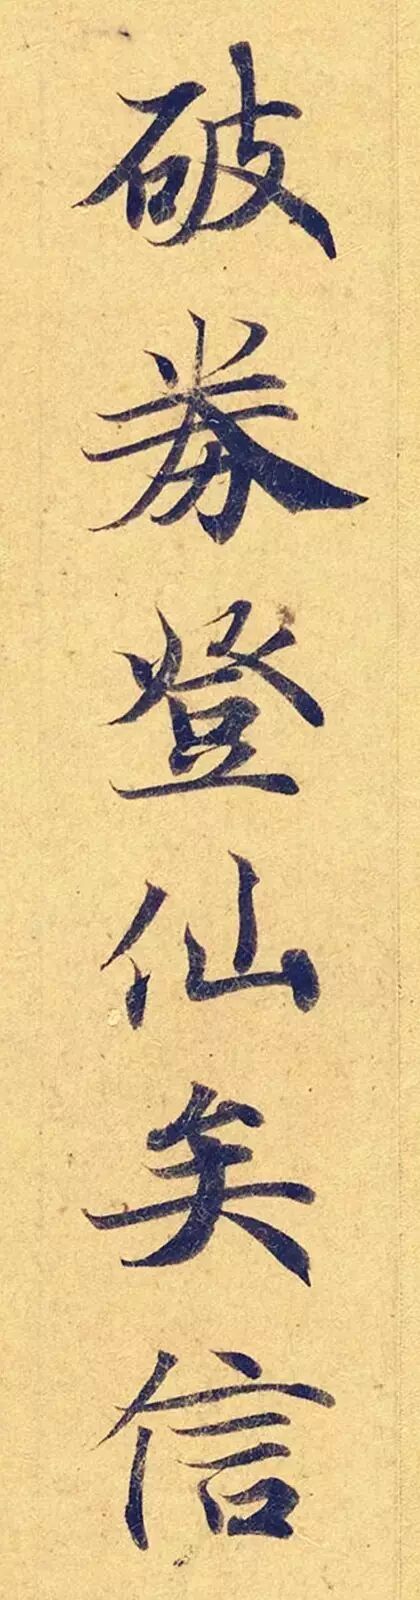 破券登仙矣信